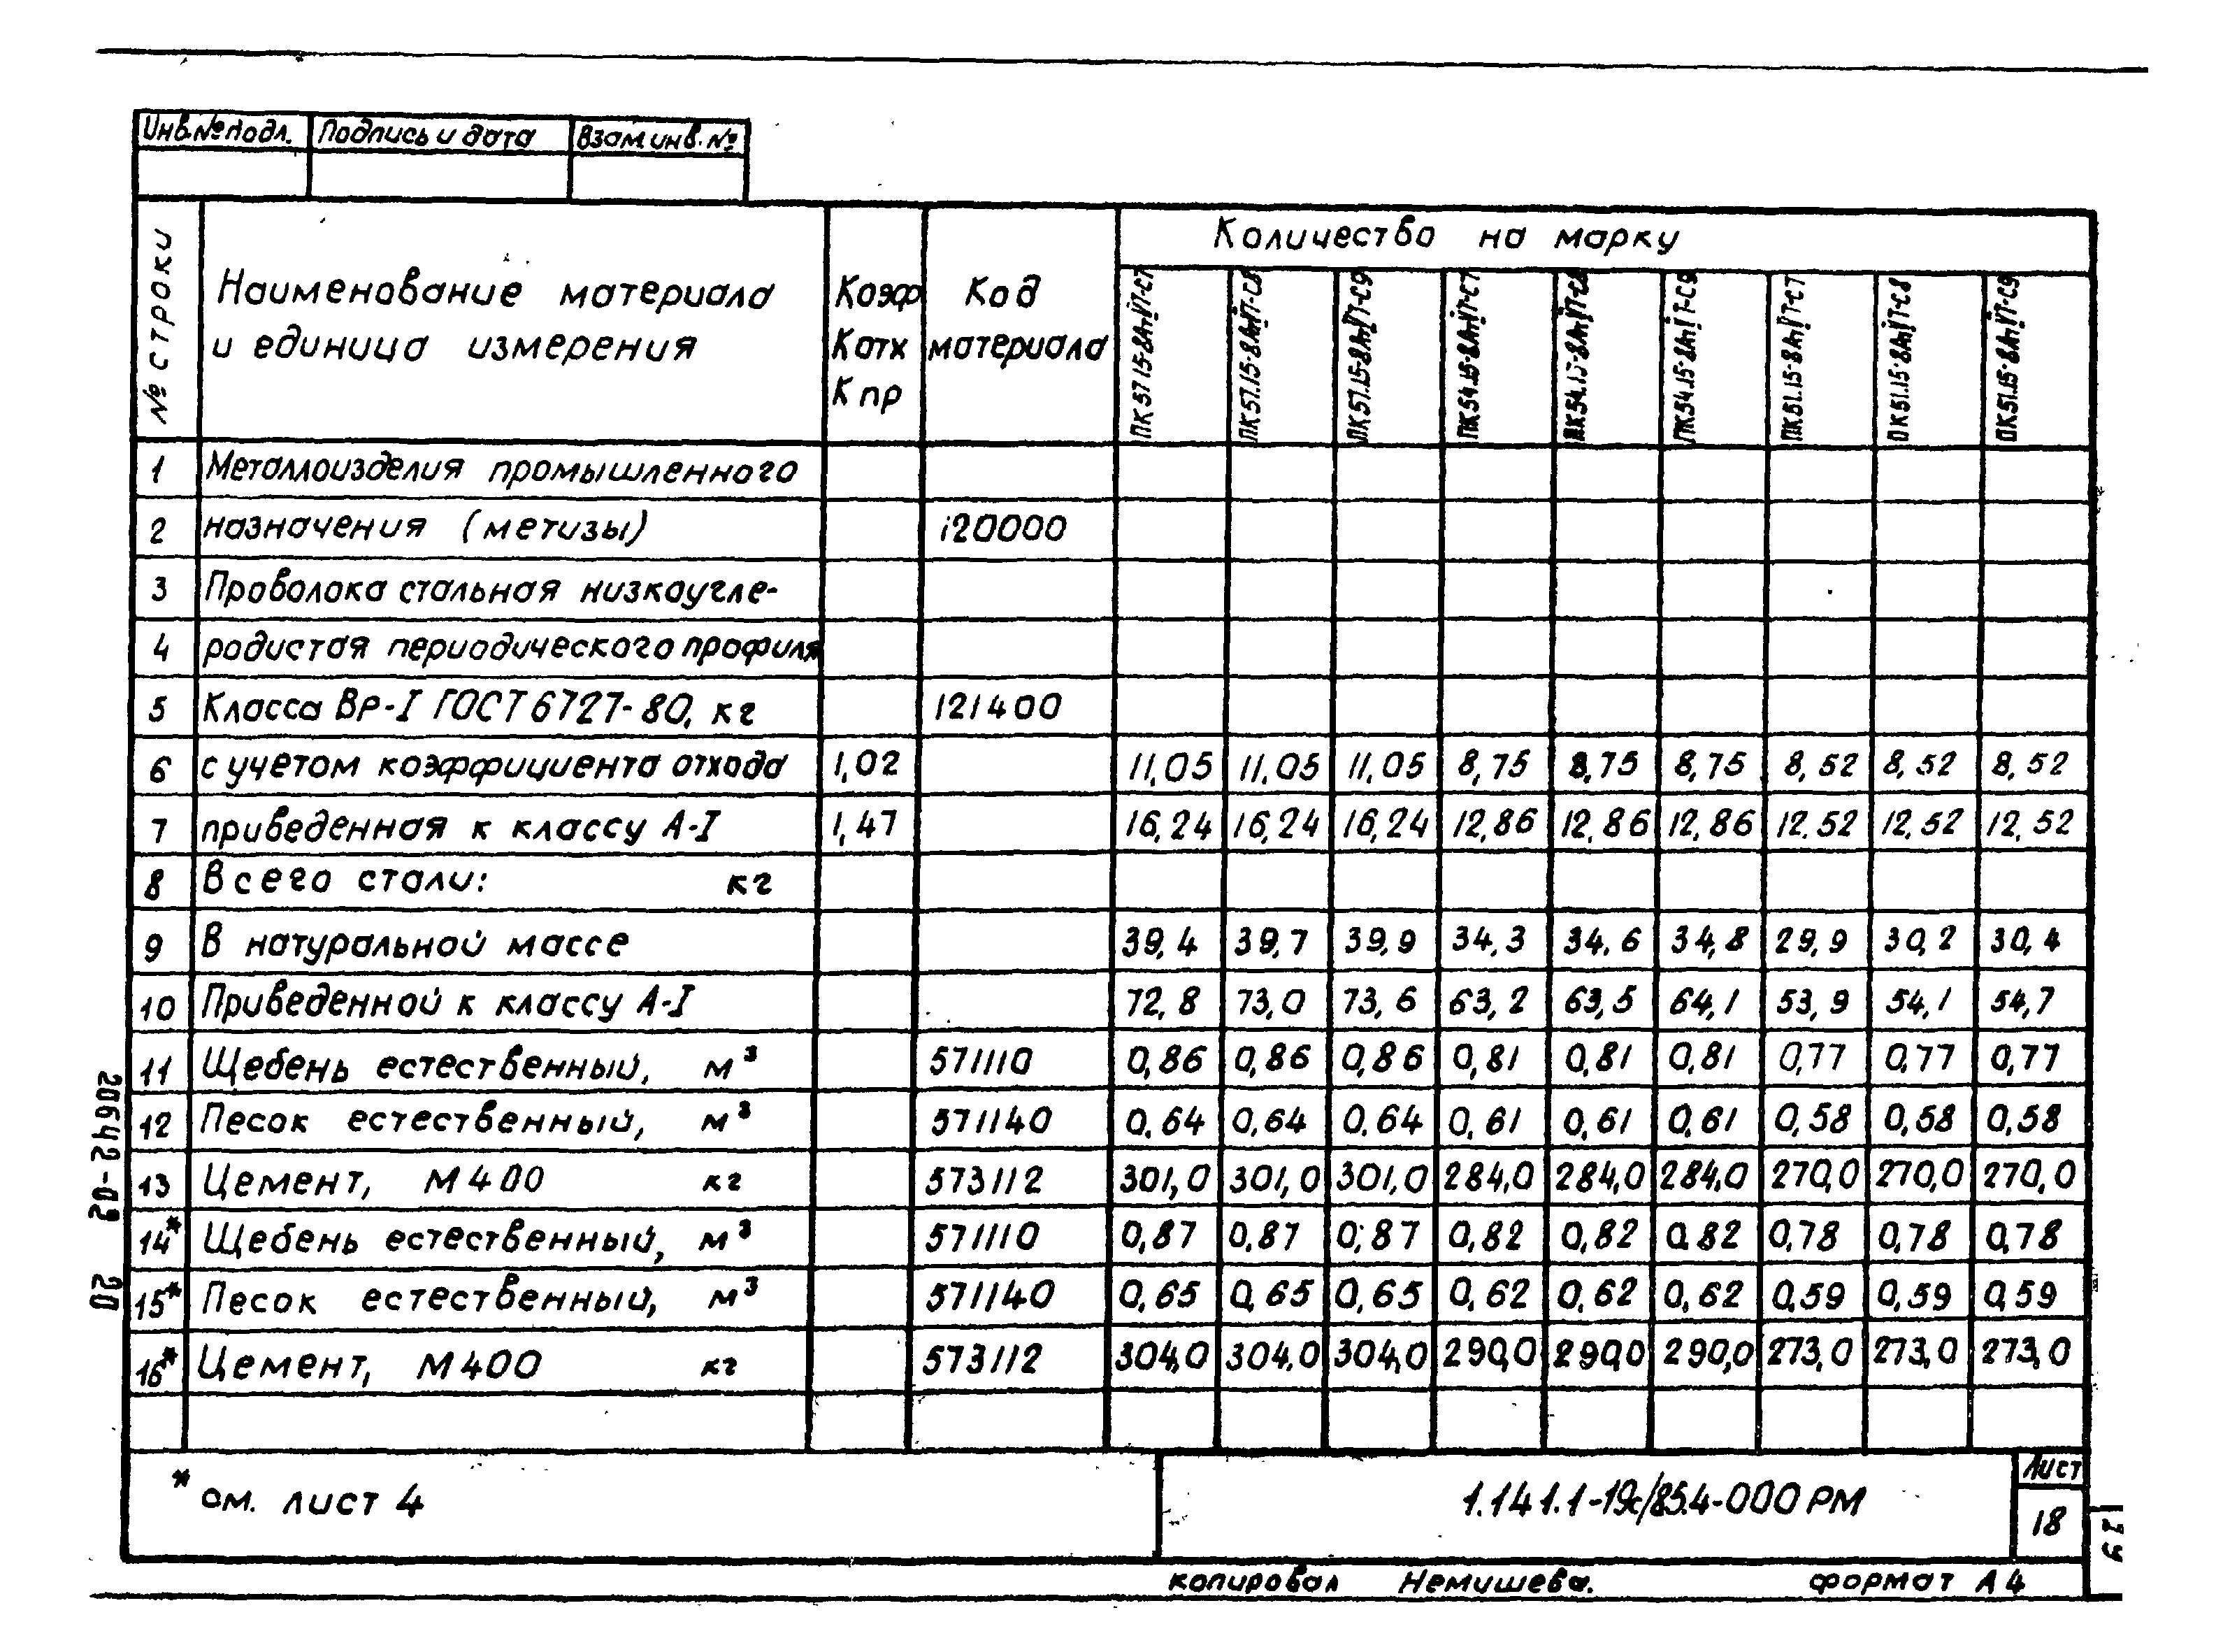 Инв.№подл. Подпись и дата Взам инв. №
№ строки
Наименование материала
и единица измерения
Коэф
Котх
К пр
Код
материала
Количество на марку
1 Металлоизделия промышленного
2 назначения (метизы) 120000
3 Проволока стальная низкоугле-
4 родистая периодического профиля
5 Класса Вр-I ГОСТ 6727-80, кг 121400
6 с учетом коэффициента отхода 1,02 11,05 11,05 11,05 8,75 8,75 8,75 8,52 8,52 8,52
7 приведенная к классу А-I 1,47 16,24 16,24 16,24 12,86 12,86 12,86 12,52 12,52 12,52
8 Всего стали: кг
9 В натуральной массе 39,4 39,7 39,9 34,3 34,6 34,8 29,9 30,2 30,4
10 Приведенной к классу А-I 72,8 73,0 73,6 63,2 63,5 64,1 53,9 54,1 54,7
11 Щебень естественный, м³ 571110 0,86 0,86 0,86 0,81 0,81 0,81 0,77 0,77 0,77
12 Песок естественный, м³ 571140 0,64 0,64 0,64 0,61 0,61 0,61 0,58 0,58 0,58
13 Цемент, М400 кг 573112 301,0 301,0 301,0 284,0 284,0 284,0 270,0 270,0 270,0
14* Щебень естественный, м³ 571110 0,87 0,87 0,87 0,82 0,82 0,82 0,78 0,78 0,78
15* Песок естественный, м³ 571140 0,65 0,65 0,65 0,62 0,62 0,62 0,59 0,59 0,59
16* Цемент, М400 кг 573112 304,0 304,0 304,0 290,0 290,0 290,0 273,0 273,0 273,0
* см. лист 4
1.141.1-19с/85.4-000 РМ
Лист
18
копировал Немишева. формат А4
20642-02 20
19